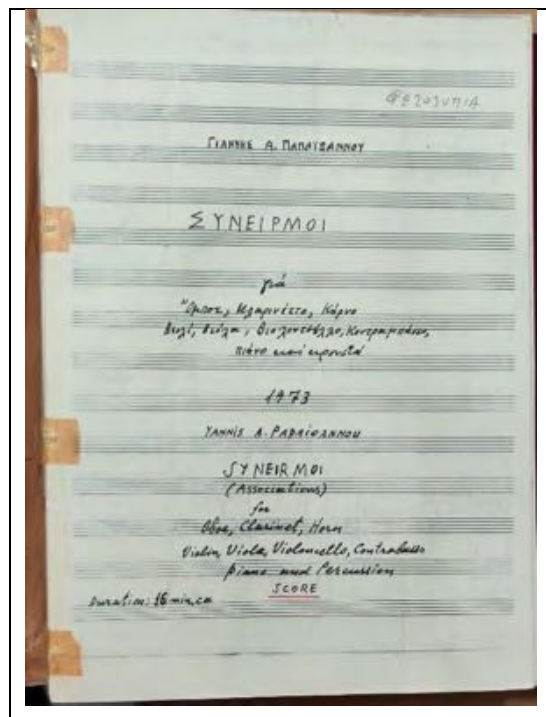 ΦΩΤΟΤΥΠΙΑ
ΓΙΑΝΝΗΣ Α. ΠΑΠΑΪΩΑΝΝΟΥ
ΣΥΝΕΙΡΜΟΙ
γιά
Ὄμποε, Κλαρινέττο, Κόρνο
Βιολί, Βιόλα, Βιολοντσέλλο, Κοντραμπάσο,
πιάνο καί κρουστά
1973
YANNIS A. PAPAIOANNOU
SYNEIRMOI
(Associations)
for
Oboe, Clarinet, Horn
Violin, Viola, Violoncello, Contrabass
piano and Percussion
SCORE
Duration: 16 min, ca